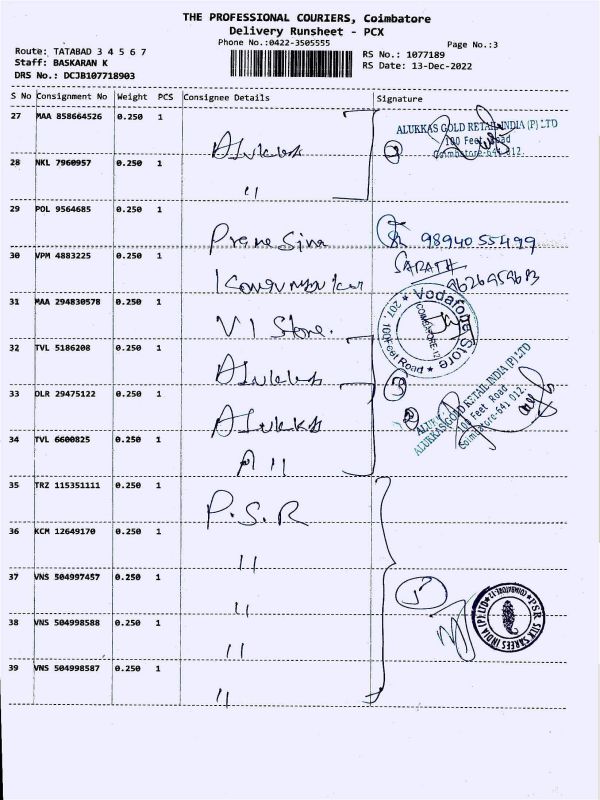 THE PROFESSIONAL COURIERS, Coimbatore
Delivery Runsheet - PCX
Phone No.:0422-3505555
Page No.:3
Route: TATABAD 3 4 5 6 7
Staff: BASKARAN K
DRS No.: DCJB107718903
RS No.: 1077189
RS Date: 13-Dec-2022
S No Consignment No Weight PCS Consignee Details Signature
27 MAA 858664526 0.250 1 Alukkas
ALUKKAS GOLD RETAIL INDIA (P) LTD
100 Feet Road
Coimbatore-641 012.
28 NKL 7960957 0.250 1 "
29 POL 9564685 0.250 1 98940 55499
30 VPM 4883225 0.250 1 SARATH
31 MAA 294830578 0.250 1 VI Store.
Vodafone Store
207, 100 Feet Road
COIMBATORE-12
32 TVL 5186208 0.250 1 Alukkas
33 DLR 29475122 0.250 1 Alukkas
ALUKKAS GOLD RETAIL INDIA (P) LTD
100 Feet Road
Coimbatore-641 012.
34 TVL 6600825 0.250 1 A "
35 TRZ 115351111 0.250 1 P.S.R
36 KCM 12649170 0.250 1 "
37 VNS 504997457 0.250 1 "
5
PSR SILK SAREES INDIA (P) LTD
COIMBATORE-12
38 VNS 504998588 0.250 1 "
39 VNS 504998587 0.250 1 "